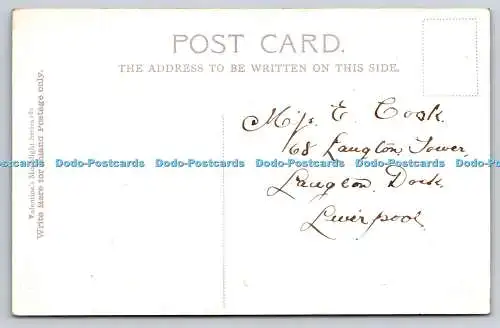 POST CARD.
THE ADDRESS TO BE WRITTEN ON THIS SIDE.
Valentine's Moonlight Series
Write Here for Inland Postage only.
Miss E. Cook.
68 Langton Tower,
Langton Dock
Liverpool
Dodo-Postcards Dodo-Postcards Dodo-Postcards Dodo-Postcards Dodo-Postcards